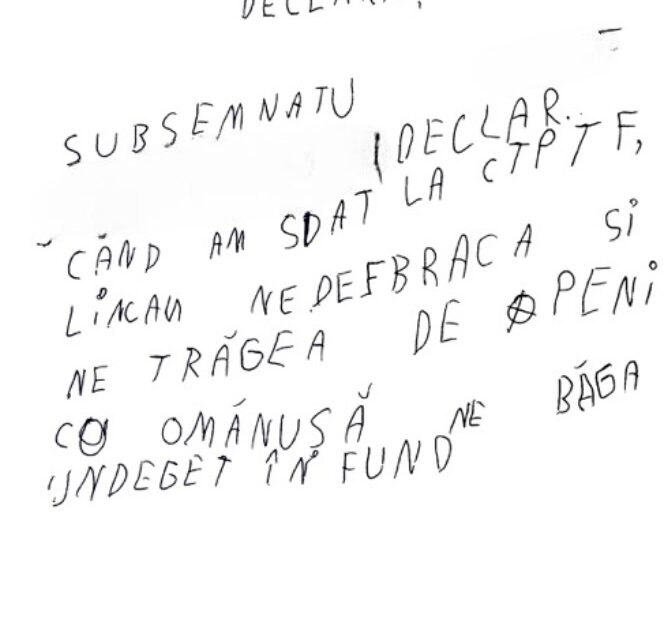 DECLARA
SUBSEMNATU
DECLAR.
CÂND AM SDAT LA CTPTF,
LINCAN NE DEFBRACA SI
NE TRĂGEA DE PENI
CO OMÁNUȘĂ NE BĂGA
UNDEGET ÎN FUND